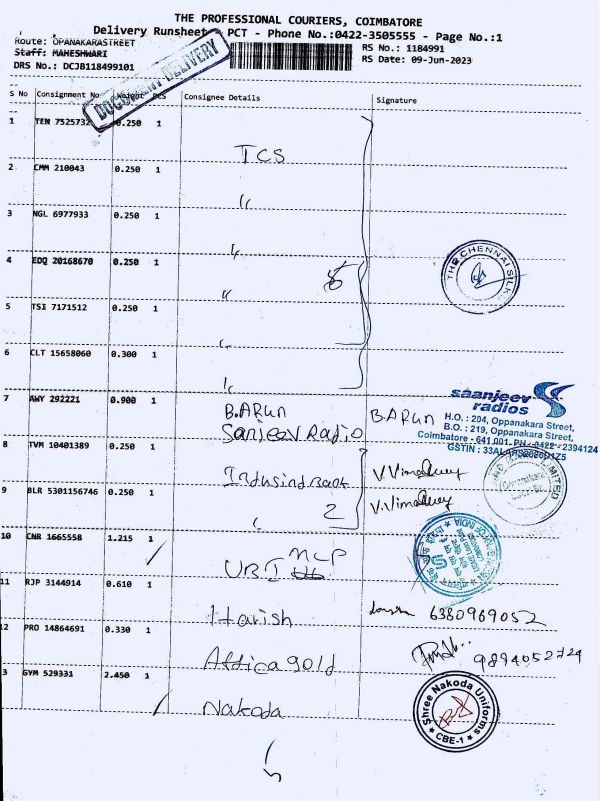 THE PROFESSIONAL COURIERS, COIMBATORE
Delivery Runsheet - PCT - Phone No.:0422-3505555 - Page No.:1
Route: OPANAKARASTREET
Staff: MAHESHWARI
DRS No.: DCJB118499101
RS No.: 1184991
RS Date: 09-Jun-2023
DOCUMENT DELIVERY
S No Consignment No Weight PCS Consignee Details Signature
1 TEN 7525732 0.250 1 TCS
2 CMM 210043 0.250 1 "
3 NGL 6977933 0.250 1 "
4 EDQ 20168670 0.250 1 "
THE CHENNAI SILK
5 TSI 7171512 0.250 1 "
6 CLT 15658060 0.300 1 "
7 AWY 292221 0.900 1 B.ARUN B.ARUN
Sanjeev Radio
saanjeev
radios
H.O.: 204, Oppanakara Street,
B.O.: 219, Oppanakara Street,
Coimbatore - 641 001. PH: 0422 - 2394124
GSTIN : 
8 TVM 10401389 0.250 1 Indusind Bank
9 BLR 5301156746 0.250 1 " 2
10 CNR 1665558 1.215 1 UBI MCP
11 RJP 3144914 0.610 1 Harish 6380969052
12 PRO 14864691 0.330 1 Attica gold 9894052724
3 GYM 529331 2.450 1 Nakoda
Shree Nakoda Uniforms
CBE-1